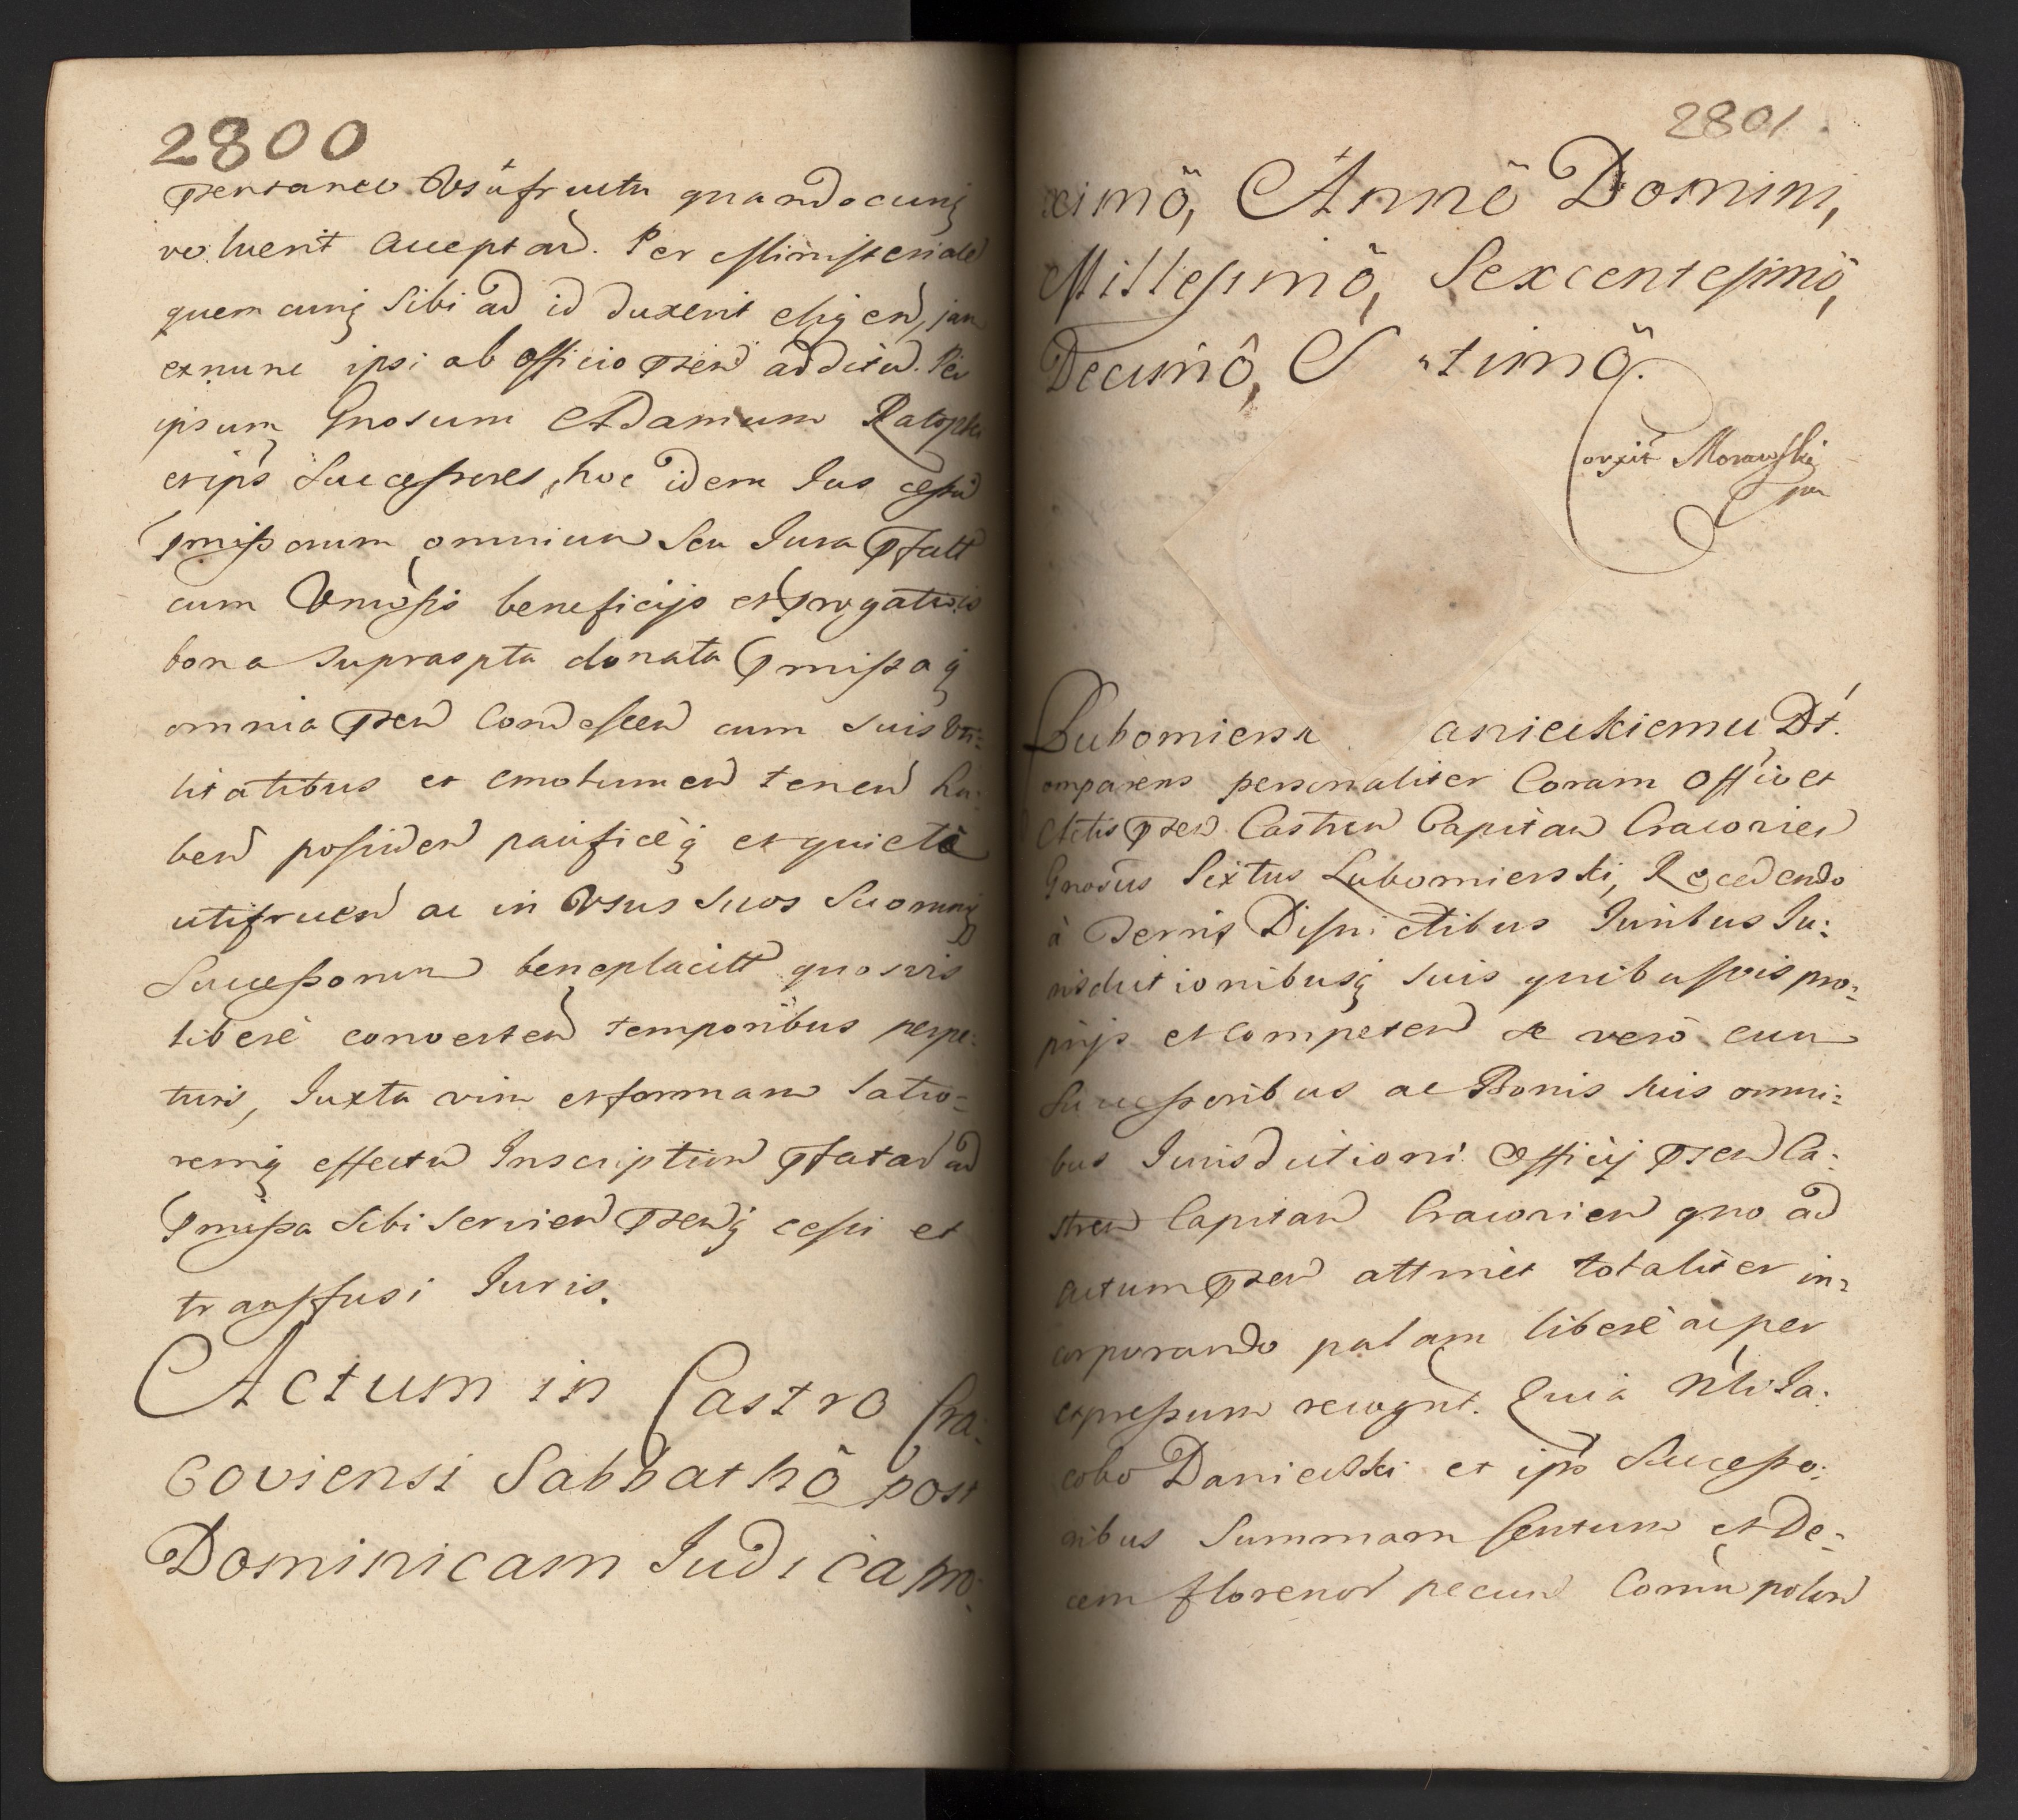 2800
Usufructu quandocunq
voluerit acceptan. Per Ministerialem
quemcunq Sibi ad id duxerit eligen, jam
exnunc ipsi ab officio pnen additu. Per
ipsum Gnosum Adamum
et ips Successores, hoc idem Ius cessu
pmissorum omnium Seu Iura pfatt
cum Universis beneficijs et prrogativis
bona suprascpta donata pmissaq
omnia pnen Condescen cum suis Uti-
litatibus et emolumen tenen ha-
ben possiden pacificeq et quietè
utifruen ac in Usus Suos Suorumq
Successorum beneplacitt quosvis
liberè converten temporibus perpe-
tuis, Iuxta vim et formam latio-
remq effectu Inscription pfatar ad
pmissa Sibi Servien pnenq cessi et
transfusi Iuris.
Actum in Castro Cra-
coviensi Sabbathô post
Dominicam Judica pro-
2801
ximô, Annô Domini,
Millesimô, Sexcentesimô,
Decimô, S timô.
Corxit Morawski
mp
Lubomiersk anieckiemu Dt.
omparens personaliter Coram Officio et
Actis pnen Castren Capitan Cracovien
Gnosus Sixtus Lubomierski, Recedendo
à Terris Districtibus Iuribus Iu-
risdictionibusq suis quibusvis pro-
prijs et competen se verò cum
Successoribus ac Bonis suis omni-
bus Iurisdictioni Officij pnen Ca-
stren Capitan Cracovien quo ad
actum pnen attinet totaliter in-
corporando palam liberè ac per
expressum recognt. Quia Nbli Ia-
cobo Daniecki et ips Successo-
ribus Summam Centum et De-
cem florenor pecun Comu polon